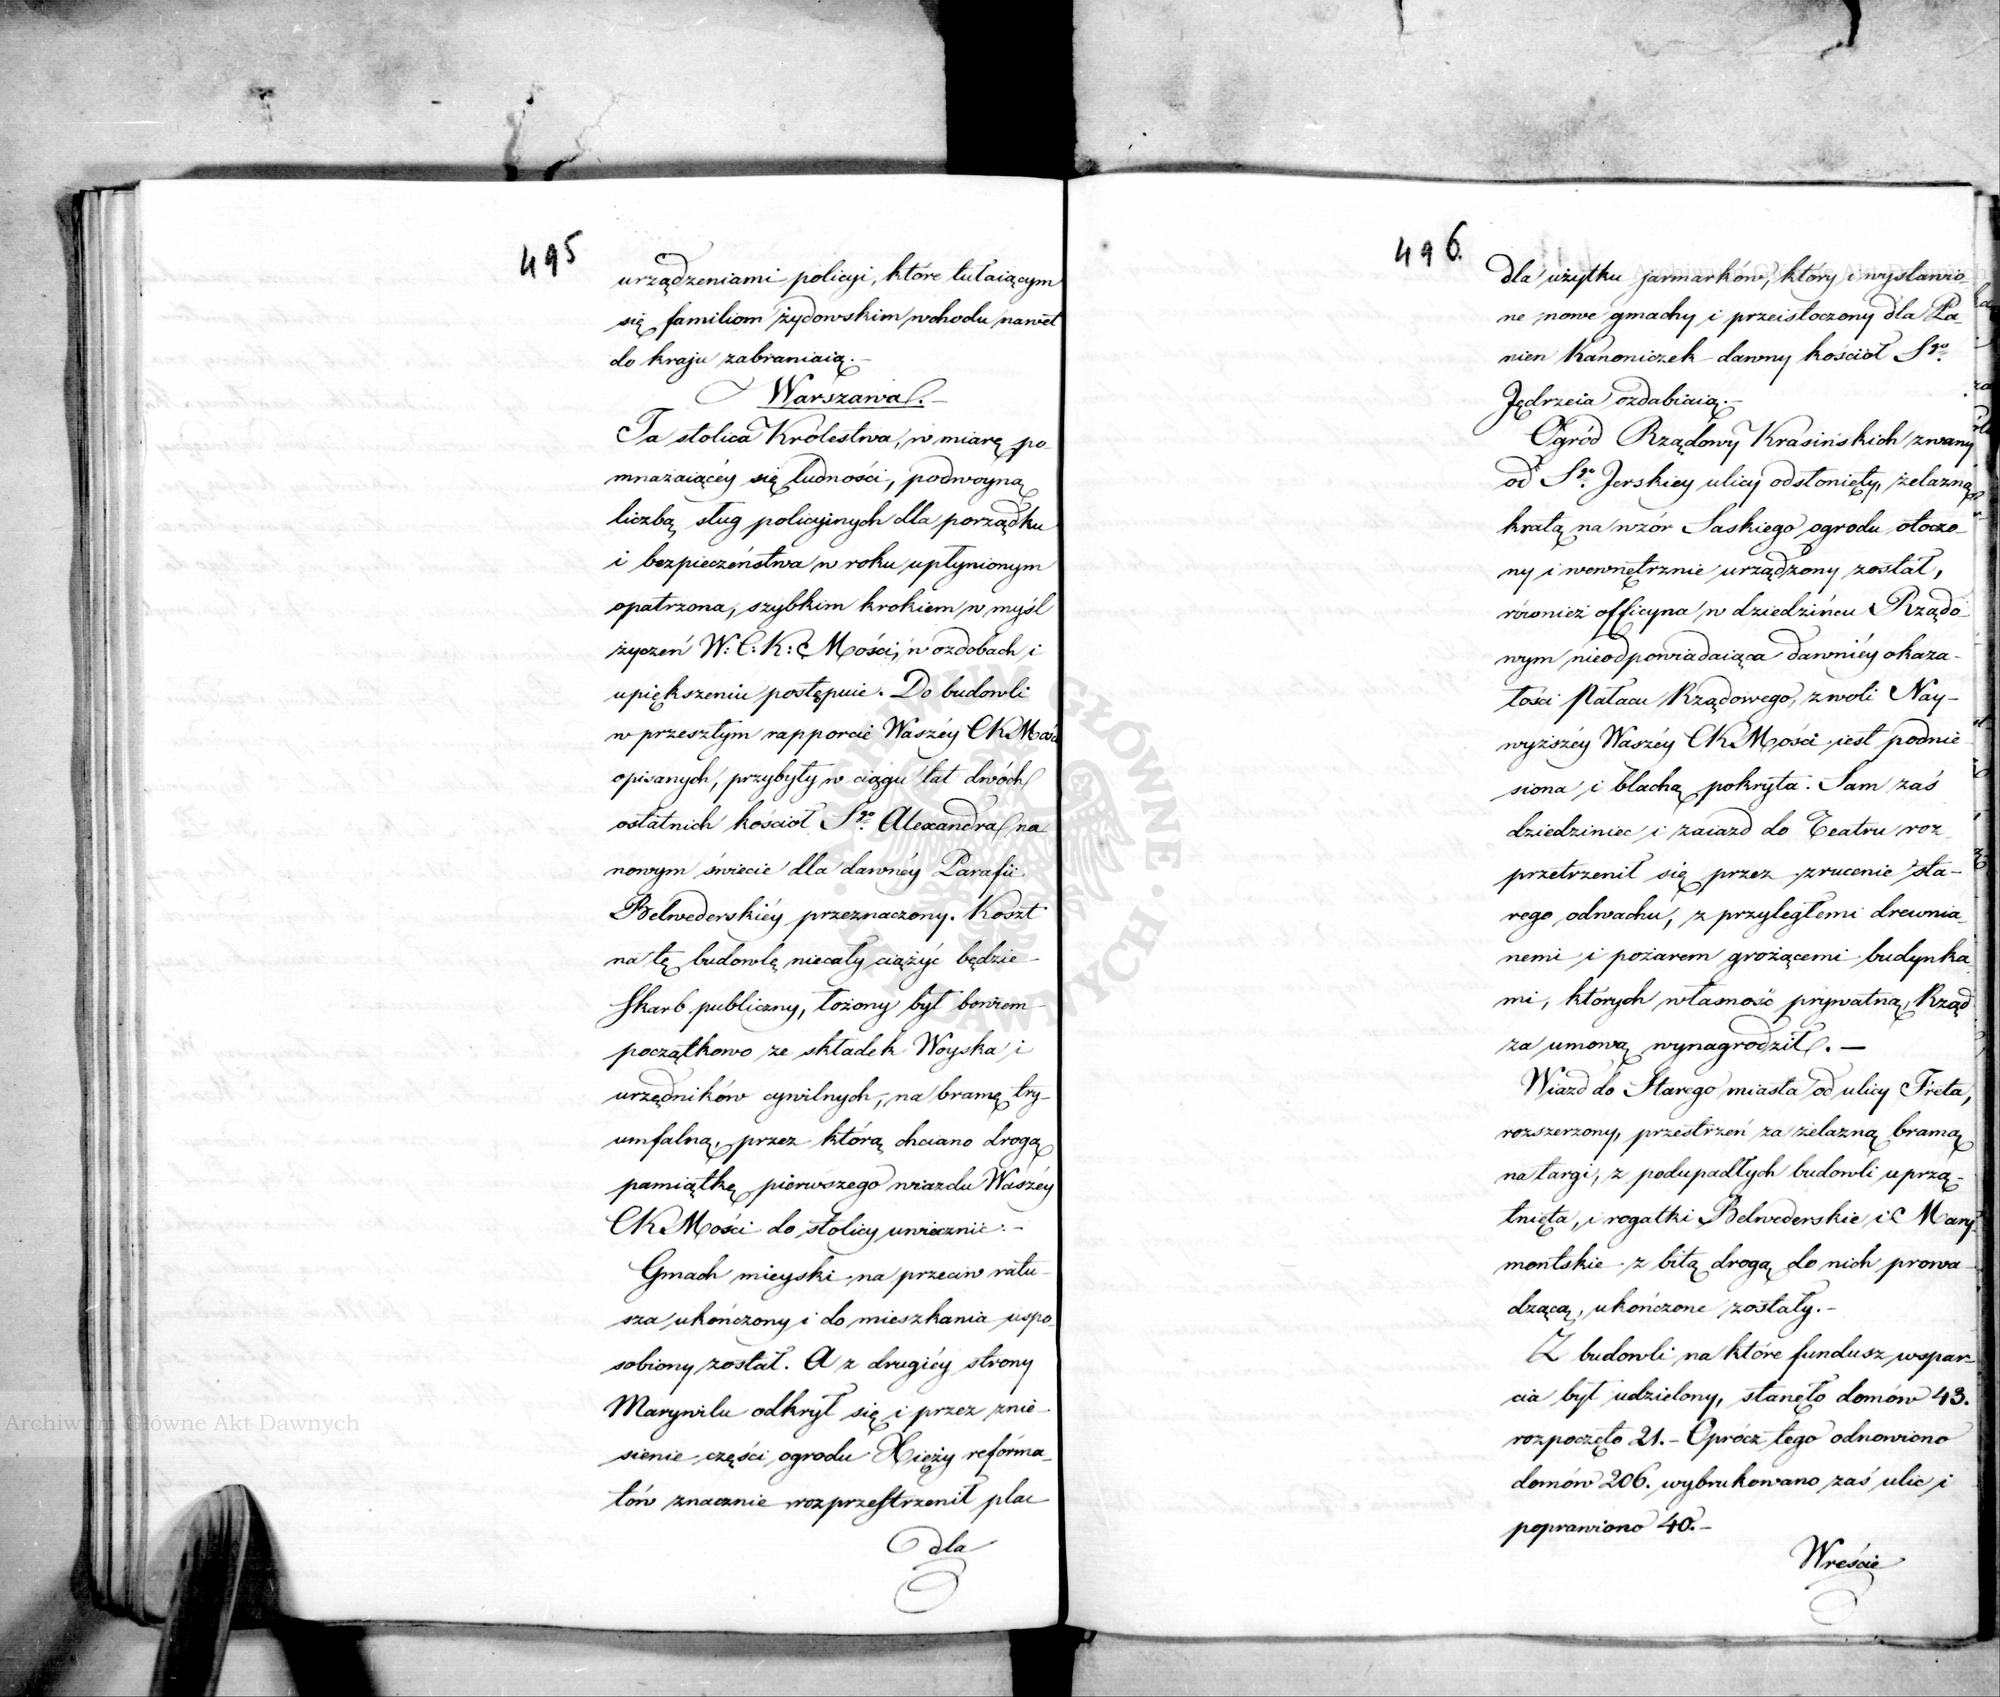 495
urządzeniami policyi, które tułaiącym
się familiom żydowskim wchodu nawet
do kraju zabraniaią.-
Warszawa.-
Ta stolica Królestwa, w miarę po-
mnażaiącéy się ludności, podwóyną
liczbą sług policyinych dla porządku
i bezpieczeństwa w roku upłynionym
opatrzona, szybkim krokiem w myśl
życzeń W: C: K: Mości, w ozdobach i
upiększeniu postępuie. Do budowli
w przeszłym rapporcie Waszéy CKMości
opisanych, przybyły w ciągu lat dwóch
ostatnich kościoł Sgo. Alexandra na
nowym świecie dla dawnéy Parafii
Belwederskiéy przeznaczony. Koszt
na tę budowlę niecały ciążyć będzie
Skarb publiczny, łożony był bowiem
początkowo ze składek Woyska i
urzędników cywilnych, na bramę try-
umfalną, przez którą chciano drogą
pamiątkę pierwszego wiazdu Waszéy
CKMości do stolicy uwiecznić.-
Gmach mieyski na przeciw ratu-
sza ukończony i do mieszkania uspo-
sobiony został. A z drugiéy strony
Marywilu odkrył się i przez znie-
sienie części ogrodu Xięży reforma-
tów znacznie rozprzestrzenił plac
dla
496.
dla użytku jarmarków, który i wystawio-
ne nowe gmachy i przeistoczony dla Pa-
nien Kanoniczek dawny kościół Sgo.
Jędrzeia ozdabiaią.-
Ogród Rządowy Krasińskich zwany
od Sgo. Jerskiey ulicy odsłonięty, żelazną
kratą na wzór Saskiego ogrodu otoczo-
ny i wewnętrznie urządzony został,
również officyna w dziedzińcu Rządo-
wym nieodpowiadaiąca dawniéy okaza-
łości Pałacu Rządowego, z woli Nay-
wyższéy Waszéy CKMości iest podnie-
siona i blachą pokryta. Sam zaś
dziedziniec i zaiazd do Teatru roz-
przetrzenił się przez zrucenie sta-
rego odwachu, z przyległemi drewnia-
nemi i pożarem grożącemi budynka-
mi, których własność prywatną, Rząd
za umową wynagrodził.-
Wiazd do Starego miasta od ulicy Freta,
rozszerzony, przestrzeń za żelazną bramą
na targi, z podupadłych budowli uprzą-
tnięta, i rogatki Belwederskie i Mary-
montskie z bitą drogą do nich prowa-
dzącą, ukończone zostały.-
Z budowli na które fundusz wspar-
cia był udzielony, stanęło domów 43.
rozpoczęto 21.- Oprócz tego odnowiono
domów 206. wybrukowano zaś ulic i
poprawiono 40.-
Wreście
Archiwum Główne Akt Dawnych
Archiwum Główne Akt Dawnych
ARCHIWUM GŁÓWNE AKT DAWNYCH